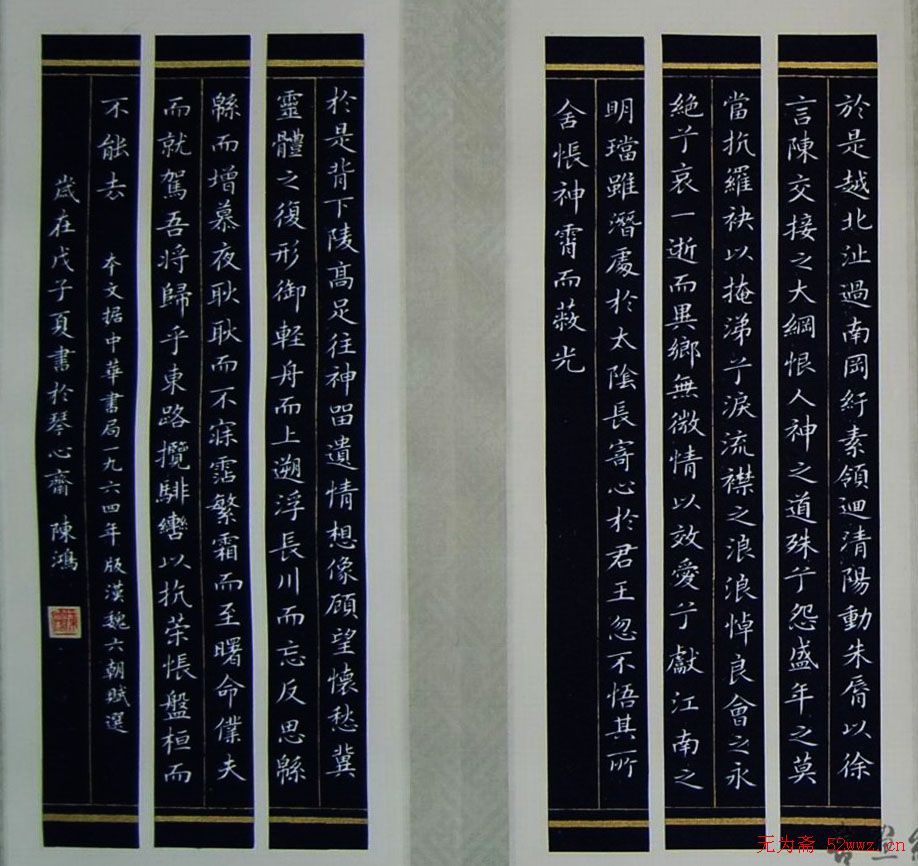 於是越北沚過南岡紆素領迴清陽動朱脣以徐
言陳交接之大綱恨人神之道殊兮怨盛年之莫
當抗羅袂以掩涕兮淚流襟之浪浪悼良會之永
絕兮哀一逝而異鄉無微情以效愛兮獻江南之
明璫雖潛處於太陰長寄心於君王忽不悟其所
舍悵神霄而蔽光
於是背下陵高足往神留遺情想像顧望懷愁冀
靈體之復形御軽舟而上遡浮長川而忘反思緜
緜而增慕夜耿耿而不寐霑繁霜而至曙命僕夫
而就駕吾將歸乎東路攬騑轡以抗策悵盤桓而
不能去 本文据中華書局一九六四年版漢魏六朝賦選
歲在戊子頁書於琴心齋 陳鴻
无为斋 52wwz.cn